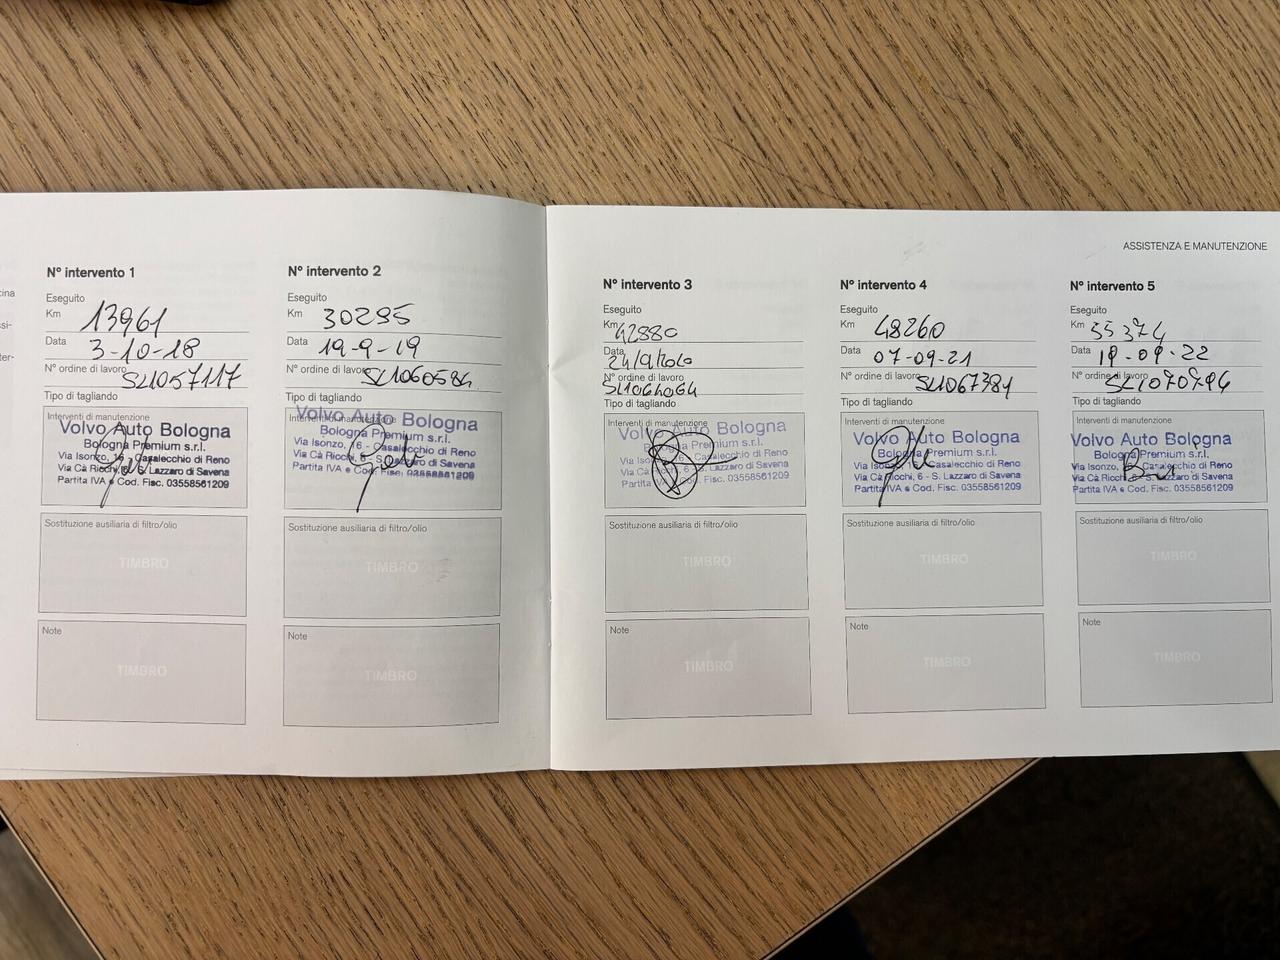 ASSISTENZA E MANUTENZIONE
N° intervento 1
Eseguito
Km 13961
Data 3-10-18
N° ordine di lavoro SL1057117
Tipo di tagliando
Interventi di manutenzione
Volvo Auto Bologna
Bologna Premium s.r.l.
Via Isonzo, 16 - Casalecchio di Reno
Via Cà Ricchi, 6 - S. Lazzaro di Savena
Partita IVA e Cod. Fisc. 03558561209
Sostituzione ausiliaria di filtro/olio
TIMBRO
Note
TIMBRO
N° intervento 2
Eseguito
Km 30295
Data 19-9-19
N° ordine di lavoro SL1060584
Tipo di tagliando
Interventi di manutenzione
Volvo Auto Bologna
Bologna Premium s.r.l.
Via Isonzo, 16 - Casalecchio di Reno
Via Cà Ricchi, 6 - S. Lazzaro di Savena
Partita IVA e Cod. Fisc. 03558561209
Sostituzione ausiliaria di filtro/olio
TIMBRO
Note
TIMBRO
N° intervento 3
Eseguito
Km 42880
Data 24/9/2020
N° ordine di lavoro
SL1064064
Tipo di tagliando
Interventi di manutenzione
Volvo Auto Bologna
Bologna Premium s.r.l.
Via Isonzo, 16 - Casalecchio di Reno
Via Cà Ricchi, 6 - S. Lazzaro di Savena
Partita IVA e Cod. Fisc. 03558561209
Sostituzione ausiliaria di filtro/olio
TIMBRO
Note
TIMBRO
N° intervento 4
Eseguito
Km 48260
Data 07-09-21
N° ordine di lavoro SL1067381
Tipo di tagliando
Interventi di manutenzione
Volvo Auto Bologna
Bologna Premium s.r.l.
Via Isonzo, 16 - Casalecchio di Reno
Via Cà Ricchi, 6 - S. Lazzaro di Savena
Partita IVA e Cod. Fisc. 03558561209
Sostituzione ausiliaria di filtro/olio
TIMBRO
Note
TIMBRO
N° intervento 5
Eseguito
Km 55374
Data 19-09-22
N° ordine di lavoro SL1070794
Tipo di tagliando
Interventi di manutenzione
Volvo Auto Bologna
Bologna Premium s.r.l.
Via Isonzo, 16 - Casalecchio di Reno
Via Cà Ricchi, 6 - S. Lazzaro di Savena
Partita IVA e Cod. Fisc. 03558561209
Sostituzione ausiliaria di filtro/olio
TIMBRO
Note
TIMBRO